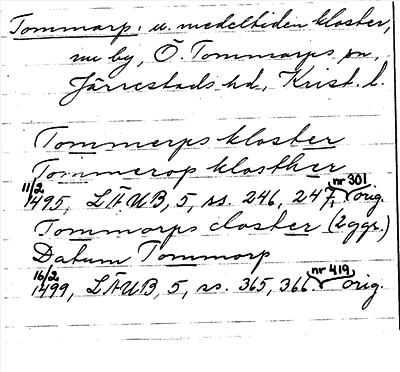 Tommarp, u. medeltiden kloster,
nu by, Ö. Tommarps sn,
Järrestads hd, Krist. l.
Tommerps kloster
Tommerop klosther
11/2 1495, LÄUB, 5, ss. 246, 247, nr 301. orig.
Tommarps closter (2 ggr.)
Datum Tommorp
16/2 1499, LÄUB, 5, ss. 365, 366. nr 419, orig.